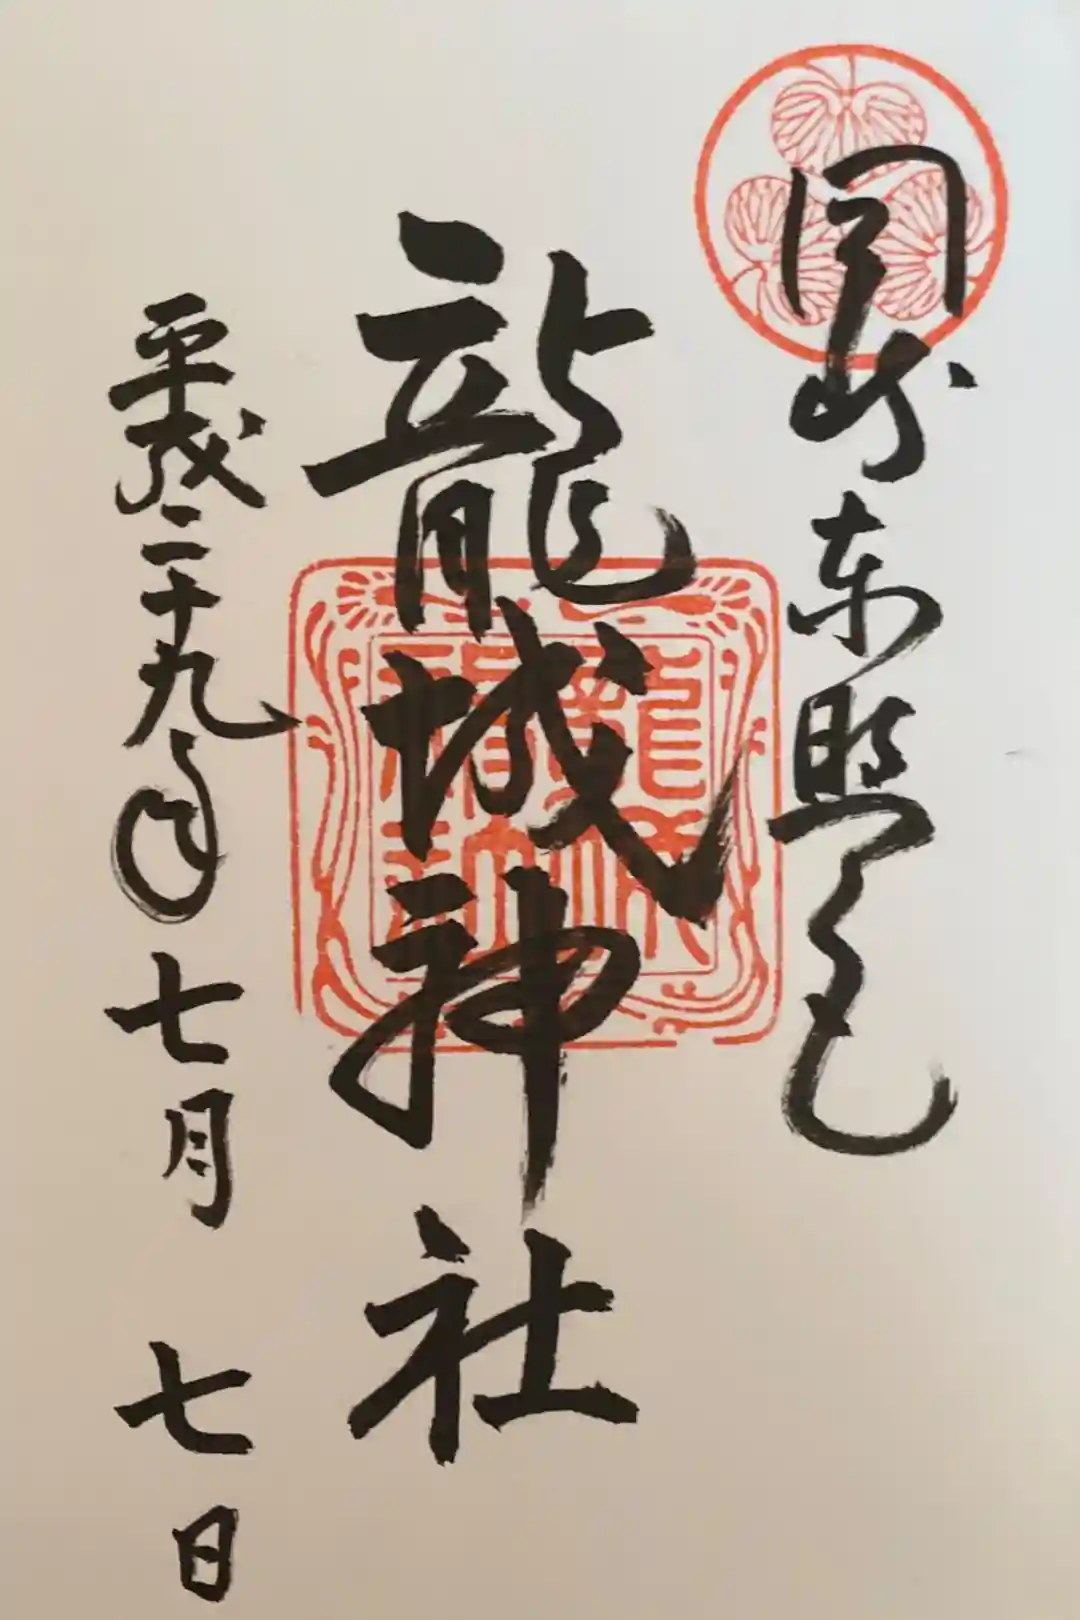 岡崎東照宮
龍城神社
平成二十九年七月七日